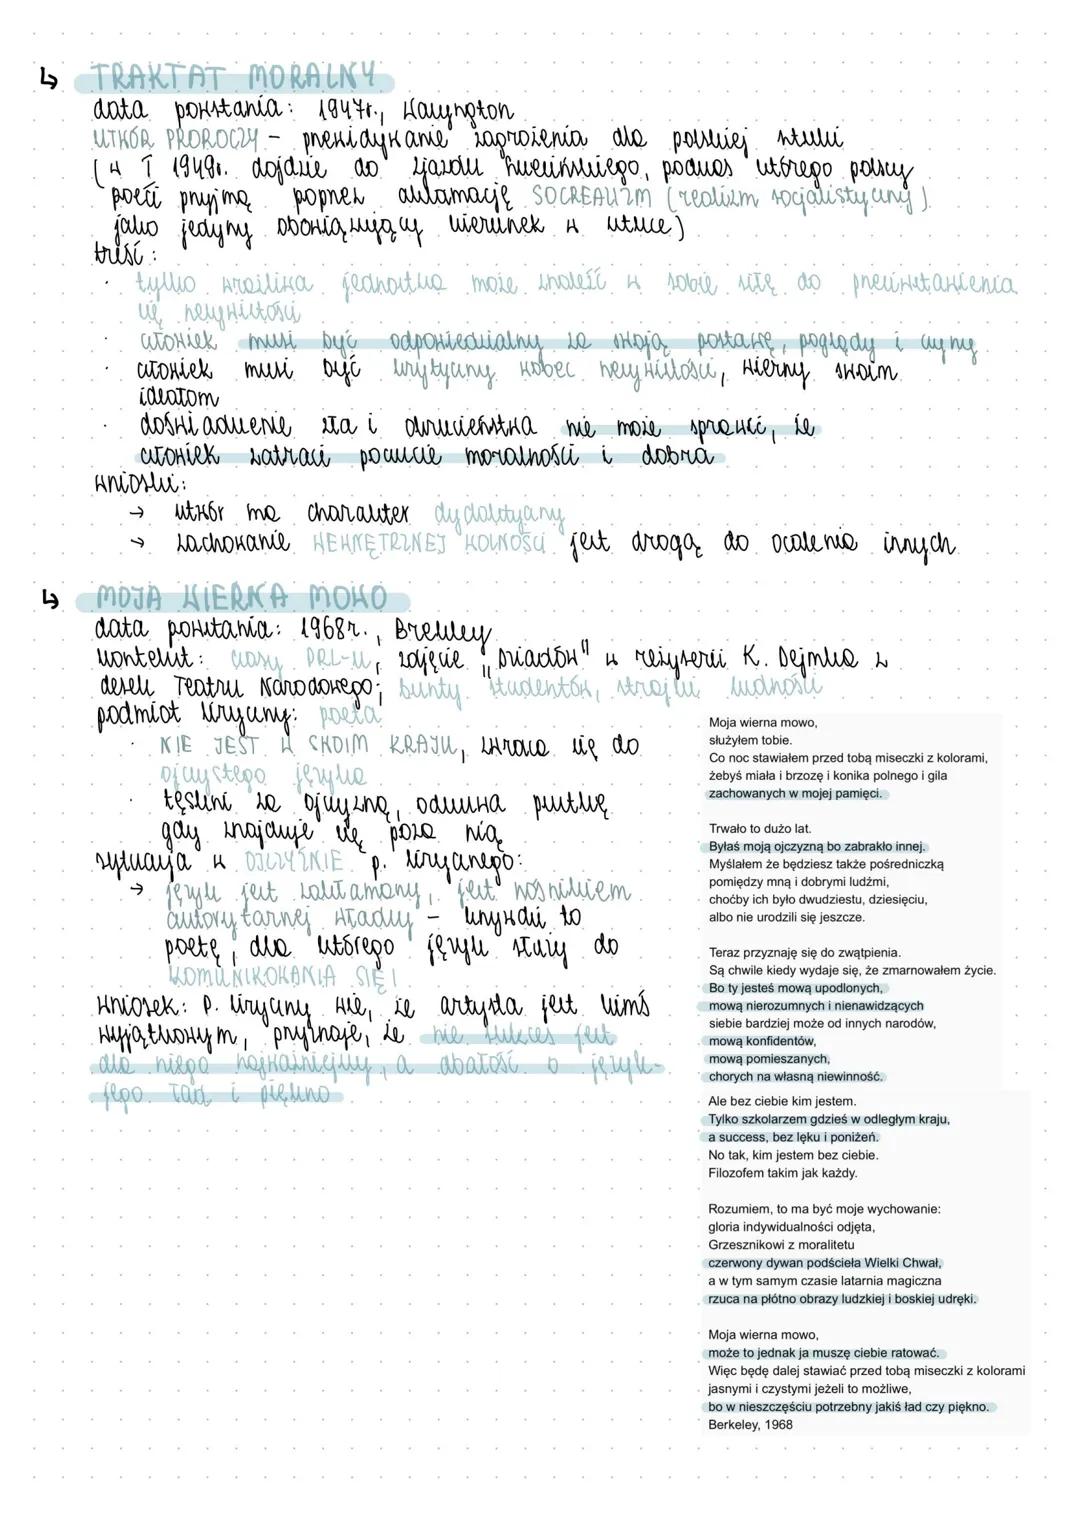 ↳ TRAKTAT MORALNY
data powstania: 1947r., Waszyngton
UTWÓR PROROCZY - przewidywanie zagrożenia dla polskiej sztuki
(w I 1949r. dojdzie do zjazdu szczecińskiego, podczas którego polscy
poeci przyjmą poprzez aklamację SOCREALIZM (realizm socjalistyczny)
jako jedyny obowiązujący kierunek w sztuce)
treść:
· tylko wrażliwa jednostka może znaleźć w sobie siłę do przeciwstawienia
się rzeczywistości
· człowiek musi być odpowiedzialny za swoją postawę, poglądy i czyny
· człowiek musi być krytyczny wobec rzeczywistości, wierny swoim
ideałom
· doświadczenie zła i okrucieństwa nie może sprawić, że
człowiek zatraci poczucie moralności i dobra
wnioski:
→ utwór ma charakter dydaktyczny
→ zachowanie WEWNĘTRZNEJ WOLNOŚCI jest drogą do ocalenia innych
↳ MOJA WIERNA MOWO
data powstania: 1968r., Berkeley
kontekst: czasy PRL-u, zdjęcie "Dziadów" w reżyserii K. Dejmka z
desek Teatru Narodowego; bunty studentów, strajki ludności
podmiot liryczny: poeta
· NIE JEST W SWOIM KRAJU, zwraca się do
ojczystego języka
· tęskni za ojczyzną, odczuwa pustkę
gdy znajduje się poza nią
sytuacja w OJCZYŹNIE p. lirycznego:
→ język jest zakłamany, jest nośnikiem
autorytarnej władzy - krzywdzi to
poetę, dla którego język służy do
KOMUNIKOWANIA SIĘ!
wniosek: p. liryczny wie, że artysta jest kimś
wyjątkowym, przyznaje, że nie sukces jest
dla niego najważniejszy, a dbałość o język-
jego ład i piękno
Moja wierna mowo,
służyłem tobie.
Co noc stawiałem przed tobą miseczki z kolorami,
żebyś miała i brzozę i konika polnego i gila
zachowanych w mojej pamięci.
Trwało to dużo lat.
Byłaś moją ojczyzną bo zabrakło innej.
Myślałem że będziesz także pośredniczką
pomiędzy mną i dobrymi ludźmi,
choćby ich było dwudziestu, dziesięciu,
albo nie urodzili się jeszcze.
Teraz przyznaję się do zwątpienia.
Są chwile kiedy wydaje się, że zmarnowałem życie.
Bo ty jesteś mową upodlonych,
mową nierozumnych i nienawidzących
siebie bardziej może od innych narodów,
mową konfidentów,
mową pomieszanych,
chorych na własną niewinność.
Ale bez ciebie kim jestem.
Tylko szkolarzem gdzieś w odległym kraju,
a success, bez lęku i poniżeń.
No tak, kim jestem bez ciebie.
Filozofem takim jak każdy.
Rozumiem, to ma być moje wychowanie:
gloria indywidualności odjęta,
Grzesznikowi z moralitetu
czerwony dywan podścieła Wielki Chwał,
a w tym samym czasie latarnia magiczna
rzuca na płótno obrazy ludzkiej i boskiej udręki.
Moja wierna mowo,
może to jednak ja muszę ciebie ratować.
Więc będę dalej stawiać przed tobą miseczki z kolorami
jasnymi i czystymi jeżeli to możliwe,
bo w nieszczęściu potrzebny jakiś ład czy piękno.
Berkeley, 1968